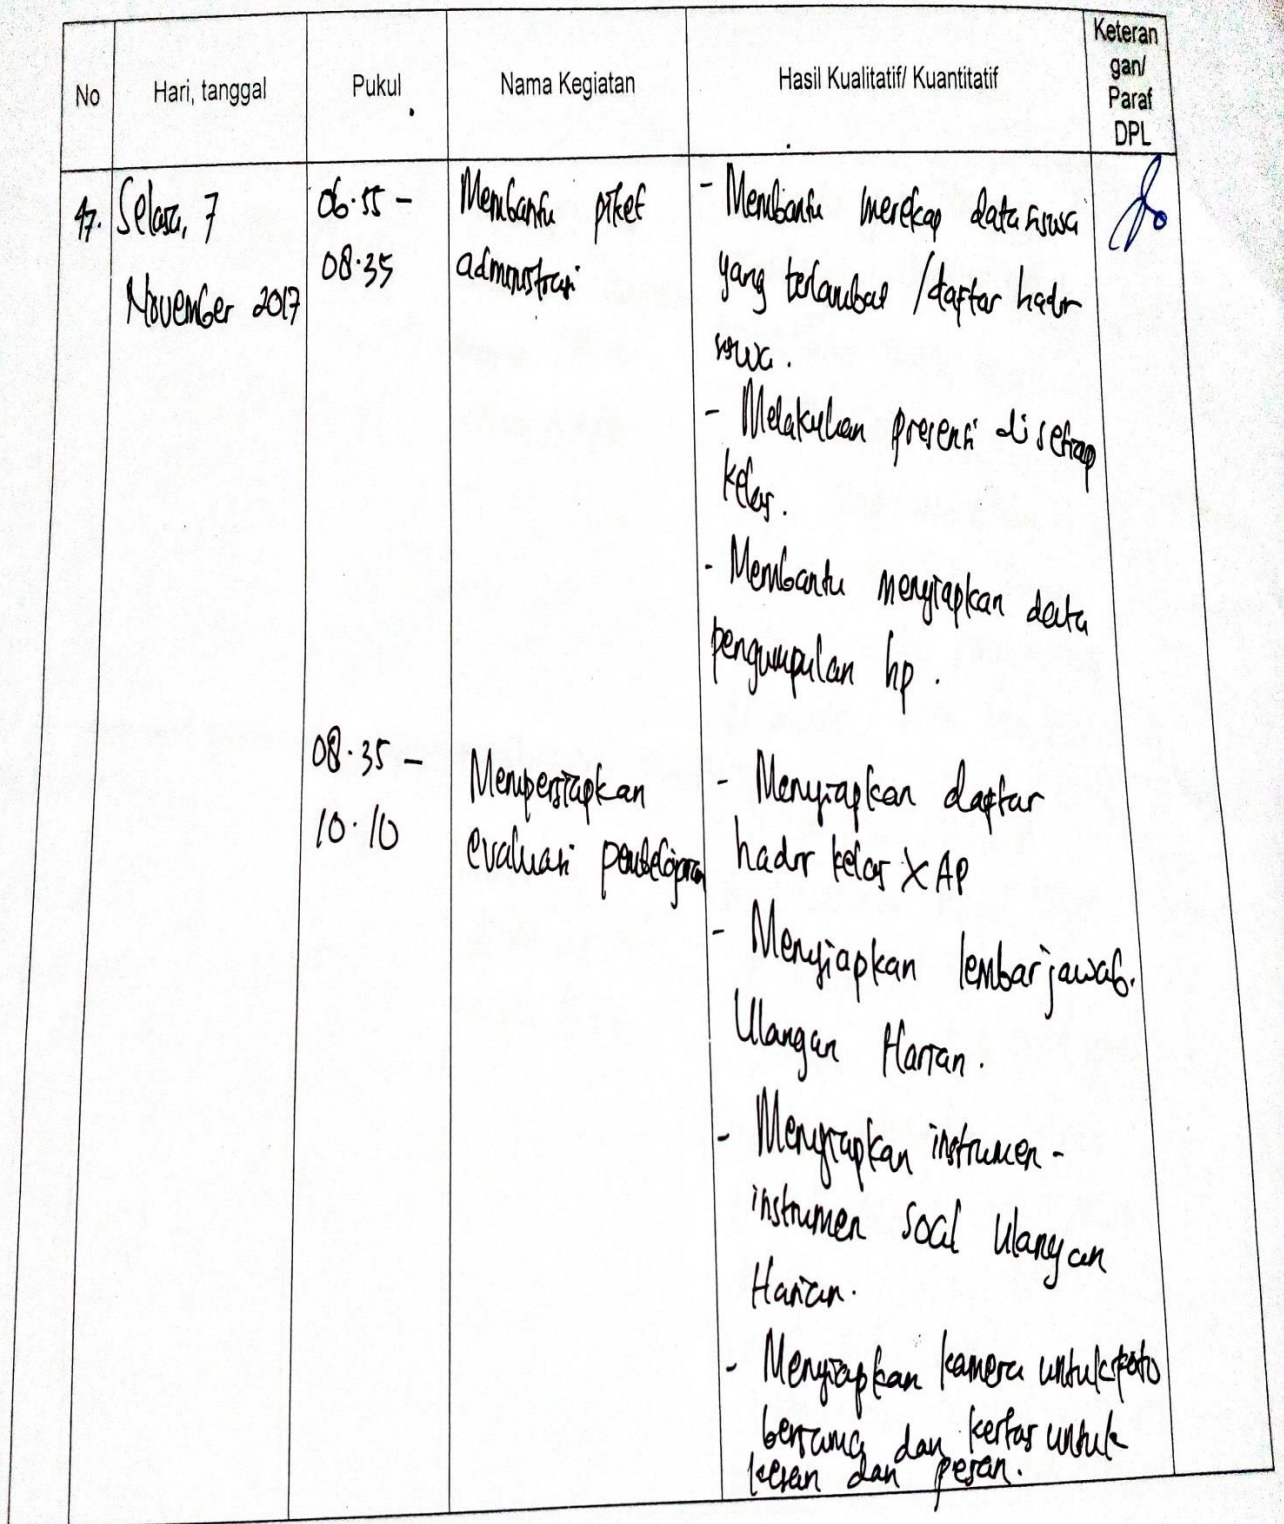 No
Hari, tanggal
Pukul
Nama Kegiatan
Hasil Kualitatif/ Kuantitatif
Keteran
gan/
Paraf
DPL
47.
Selasa, 7
November 2017
06.55 -
08.35
Membantu piket
administrasi
- Membantu merekap data siswa
yang terlambat / daftar hadir
siswa.
- Melakukan presensi di setiap
kelas.
- Membantu menyiapkan data
pengumpulan hp.
08.35 -
10.10
Mempersiapkan
evaluasi pembelajaran
- Menyiapkan daftar
hadir kelas X AP
- Menyiapkan lembar jawab.
Ulangan Harian.
- Menyiapkan instrumen -
instrumen soal Ulangan
Harian.
- Menyiapkan kamera untuk foto
bersama dan kertas untuk
kesan dan pesan.